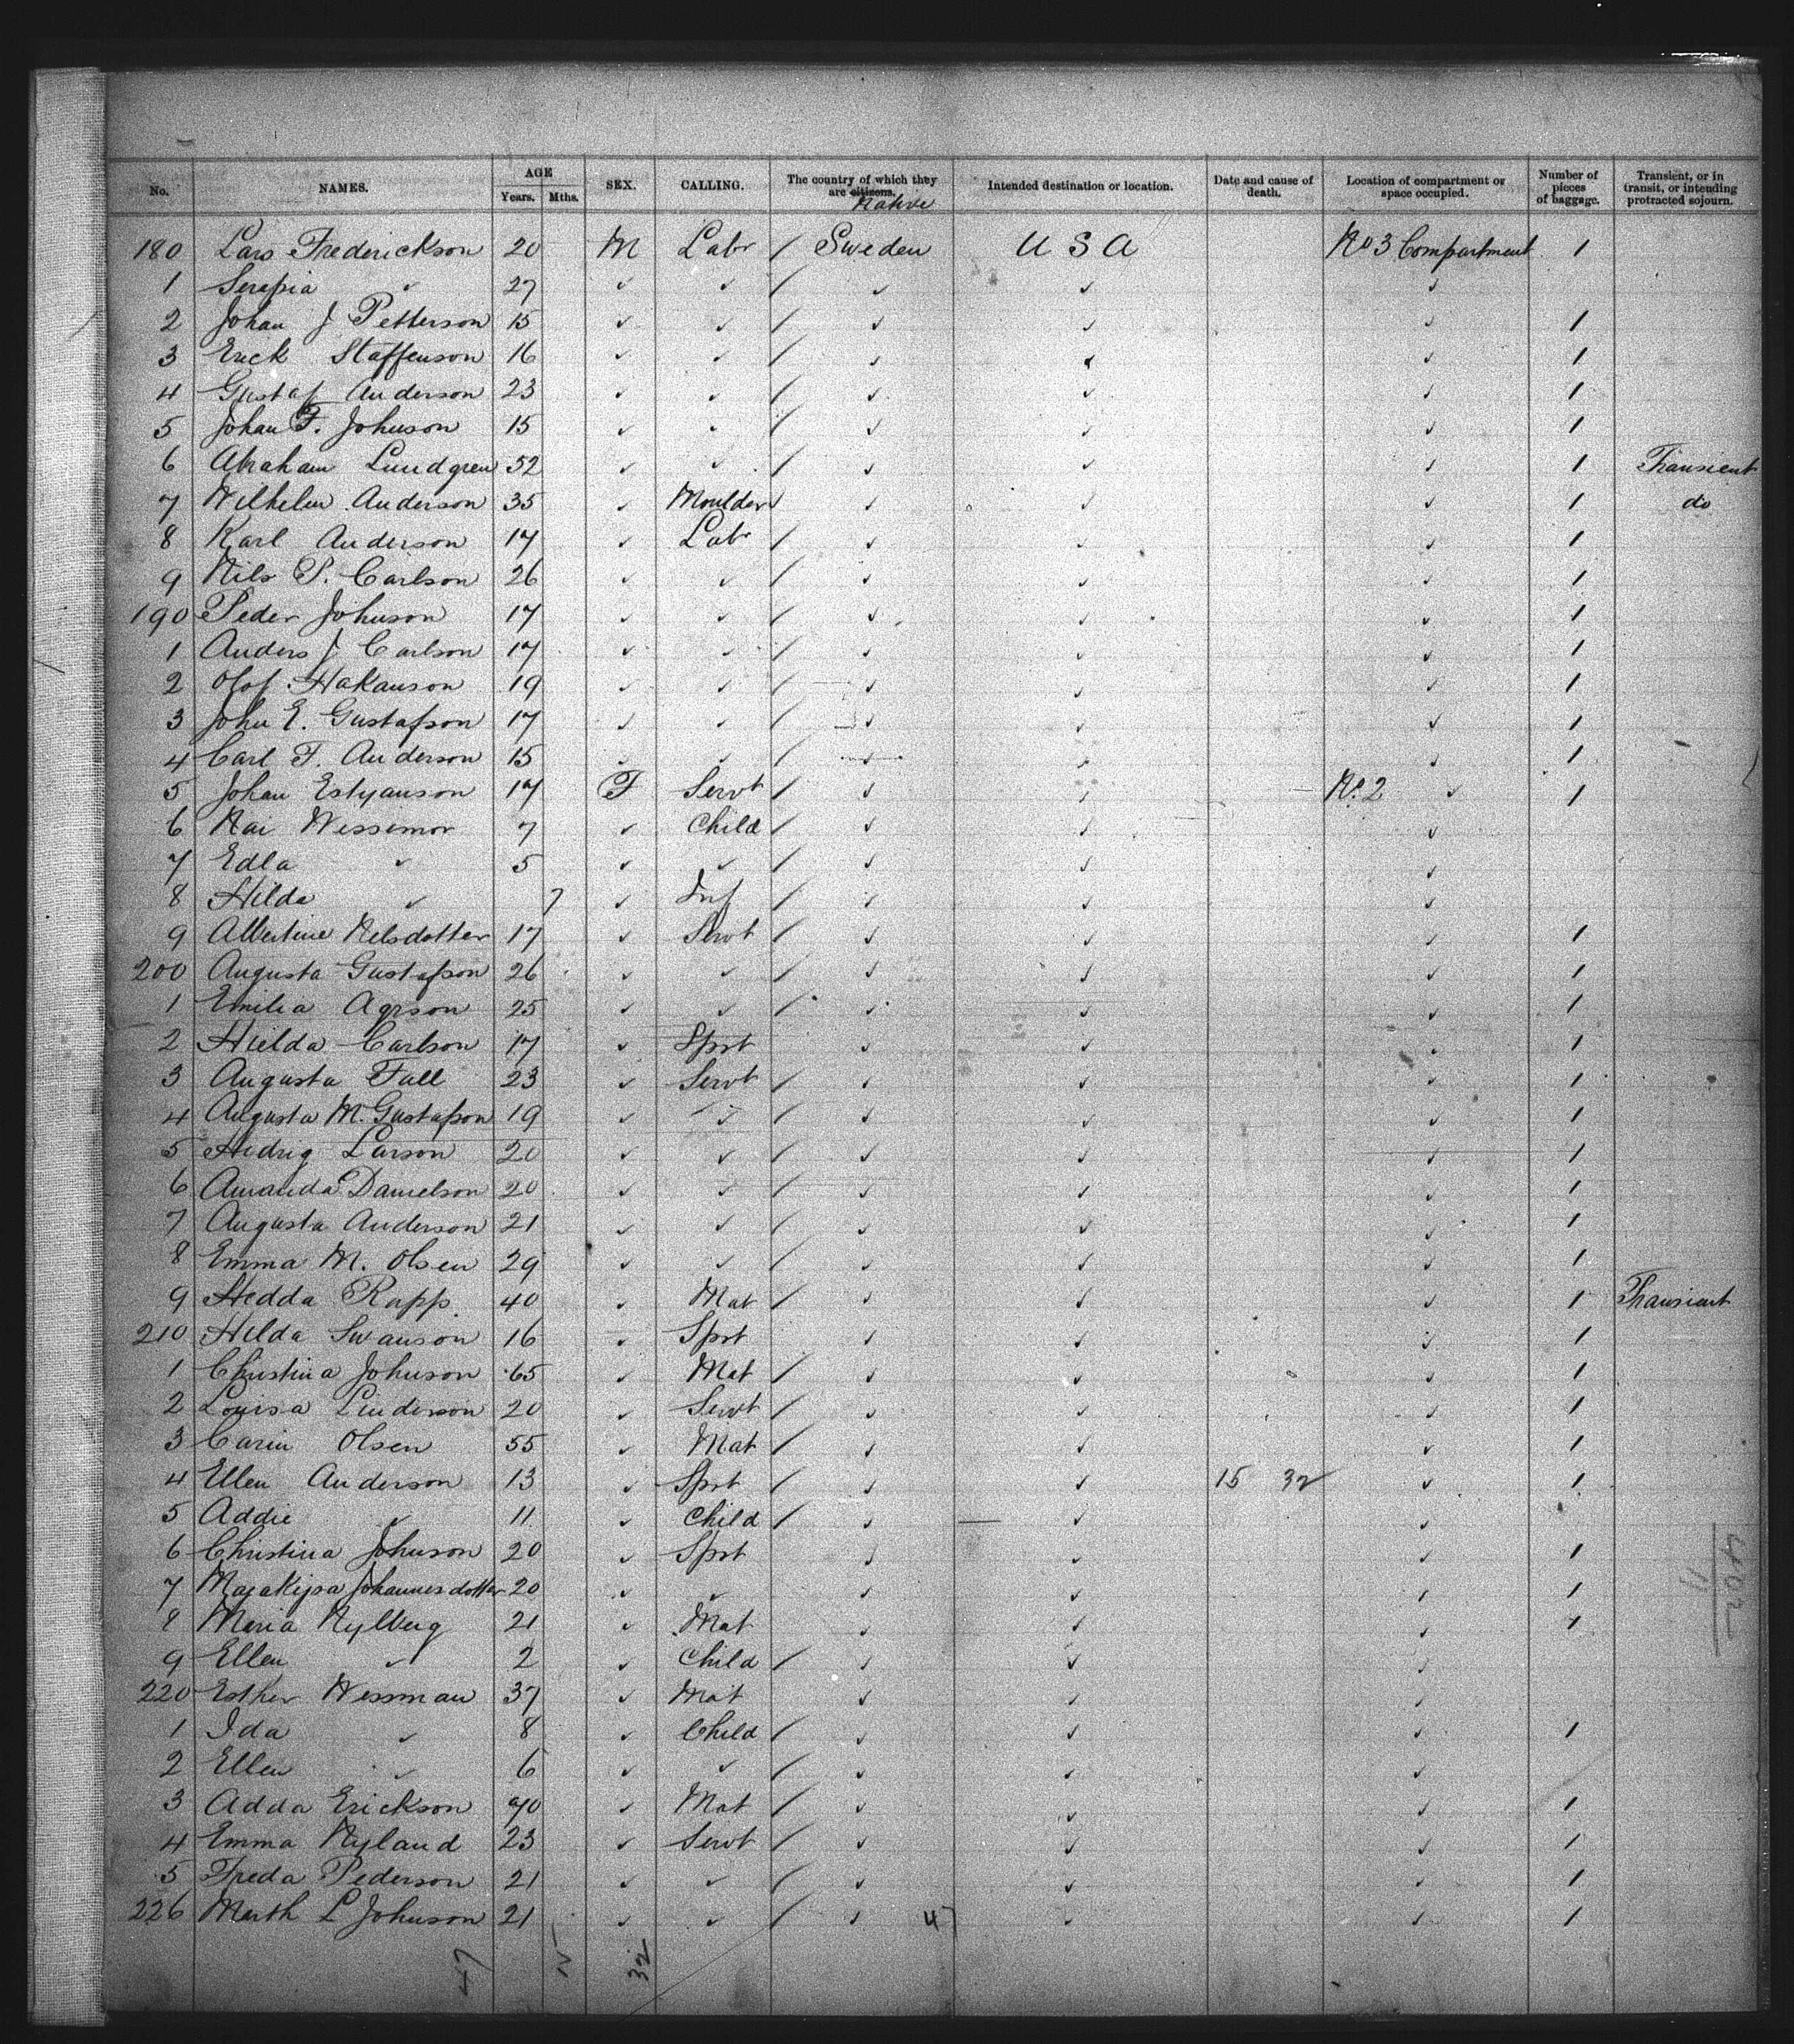 No. NAMES. AGE Years. Mths. SEX. CALLING. The country of which they are citizens. Native Intended destination or location. Date and cause of death. Location of compartment or space occupied. Number of pieces of baggage. Transient, or in transit, or intending protracted sojourn.
180 Lars Frederickson 20 M Labr / Sweden U S A No 3 Compartment 1
1 Serapia ✓ 27 ✓ ✓ / ✓ ✓ ✓
2 Johan J Petterson 15 ✓ ✓ / ✓ ✓ ✓ 1
3 Erick Staffenson 16 ✓ ✓ / ✓ ✓ ✓ 1
4 Gustaf Anderson 23 ✓ ✓ / ✓ ✓ ✓ 1
5 Johan F. Johnson 15 ✓ ✓ / ✓ ✓ ✓ 1
6 Abraham Lundgren 52 ✓ ✓ / ✓ ✓ ✓ 1 Transient
7 Wilhelm Anderson 35 ✓ Moulder / ✓ ✓ ✓ 1 do
8 Karl Anderson 17 ✓ Labr / ✓ ✓ ✓ 1
9 Nils P. Carlson 26 ✓ ✓ / ✓ ✓ ✓ 1
190 Peder Johnson 17 ✓ ✓ / ✓ ✓ ✓ 1
1 Anders J Carlson 17 ✓ ✓ / ✓ ✓ ✓ 1
2 Olof Hakanson 19 ✓ ✓ / ✓ ✓ ✓ 1
3 John E. Gustafson 17 ✓ ✓ / ✓ ✓ ✓ 1
4 Carl F. Anderson 15 ✓ ✓ / ✓ ✓ ✓ 1
5 Johan Estyanson 17 F Servt / ✓ ✓ No 2 ✓ 1
6 Nai Wessemor 7 ✓ Child / ✓ ✓ ✓
7 Edla ✓ 5 ✓ ✓ / ✓ ✓ ✓
8 Hilda ✓ 7 ✓ Inf / ✓ ✓ ✓
9 Albertine Nelsdotter 17 ✓ Servt / ✓ ✓ ✓ 1
200 Augusta Gustafson 26 ✓ ✓ / ✓ ✓ ✓ 1
1 Emilia Agrson 25 ✓ ✓ / ✓ ✓ ✓ 1
2 Hielda Carlson 17 ✓ Sprt ✓ ✓ ✓ 1
3 Augusta Fall 23 ✓ Servt / ✓ ✓ ✓ 1
4 Augusta M. Gustafson 19 ✓ ✓ / ✓ ✓ ✓ 1
5 Hedrig Larson 20 ✓ ✓ / ✓ ✓ ✓ 1
6 Amanda Danielson 20 ✓ ✓ / ✓ ✓ ✓ 1
7 Augusta Anderson 21 ✓ ✓ / ✓ ✓ ✓ 1
8 Emma M. Olsen 29 ✓ ✓ / ✓ ✓ ✓ 1
9 Hedda Rapp 40 ✓ Mat / ✓ ✓ ✓ 1 Transient
210 Hilda Swanson 16 ✓ Sprt ✓ ✓ ✓ 1
1 Christina Johnson 65 ✓ Mat / ✓ ✓ ✓ 1
2 Louisa Linderson 20 ✓ Servt / ✓ ✓ ✓ 1
3 Carin Olsen 55 ✓ Mat / ✓ ✓ ✓ 1
4 Ellen Anderson 13 ✓ Sprt ✓ ✓ 15 32 ✓ 1
5 Addie ✓ 11 ✓ Child / ✓ ✓ ✓
6 Christina Johnson 20 ✓ Sprt ✓ ✓ ✓ 1
7 Majakijsa Johannesdotter 20 ✓ ✓ ✓ ✓ ✓ 1
8 Maria Nylberg 21 ✓ Mat ✓ ✓ ✓ 1
9 Ellen ✓ 2 ✓ Child / ✓ ✓ ✓
220 Esther Wessman 37 ✓ Mat ✓ ✓ ✓
1 Ida ✓ 8 ✓ Child / ✓ ✓ ✓ 1
2 Ellen ✓ 6 ✓ ✓ / ✓ ✓ ✓
3 Adda Erickson 70 ✓ Mat / ✓ ✓ ✓ 1
4 Emma Nyland 23 ✓ Servt / ✓ ✓ ✓ 1
5 Freda Pederson 21 ✓ ✓ / ✓ ✓ ✓ 1
226 Marth L Johnson 21 ✓ ✓ / ✓ 47 ✓ ✓ 1
47 15 32
402
11